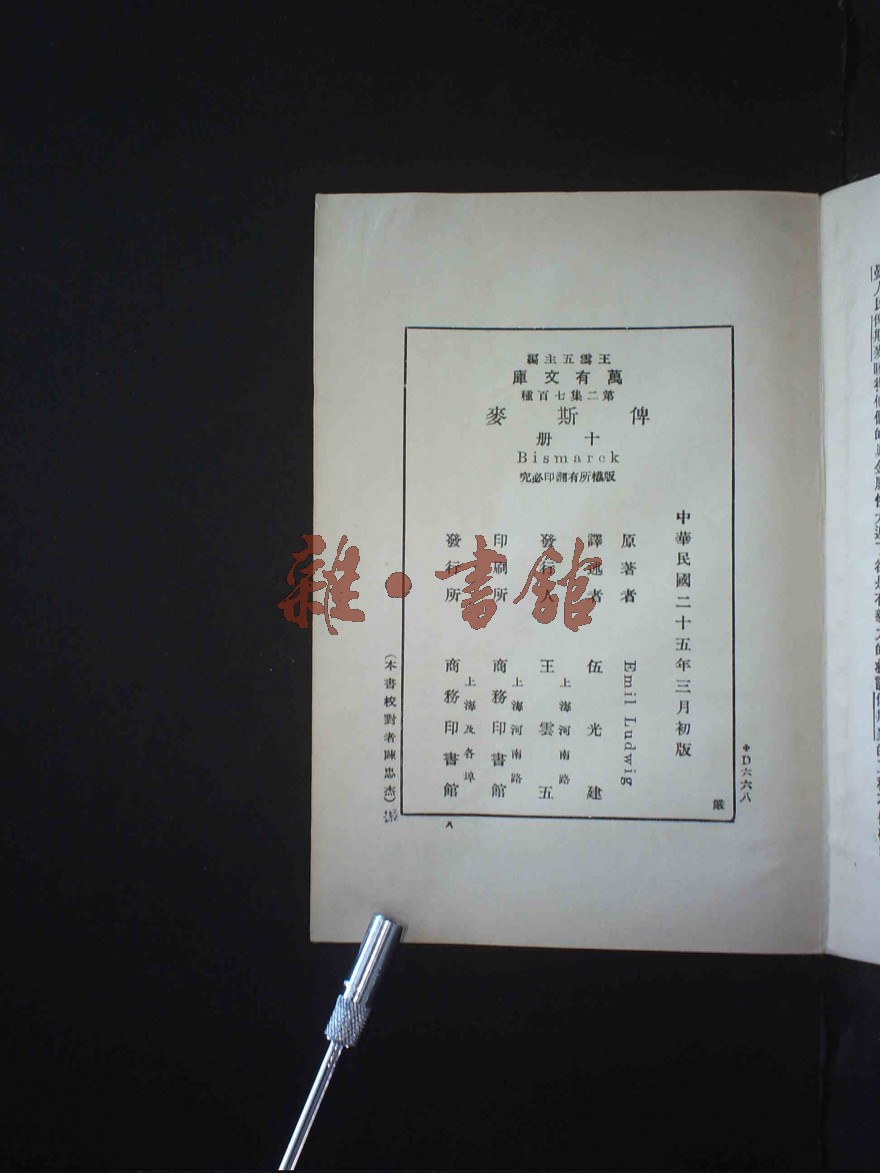 王雲五主編
萬有文庫
第二集七百種
俾斯麥
十册
Bismarck
版權所有翻印必究
中華民國二十五年三月初版
＊D六六八
原著者 Emil Ludwig
譯述者 伍光建
發行人 王雲五
上海河南路
印刷所 商務印書館
上海河南路
發行所 商務印書館
上海及各埠
（本書校對者陳忠杰）
嚴
雜·書館